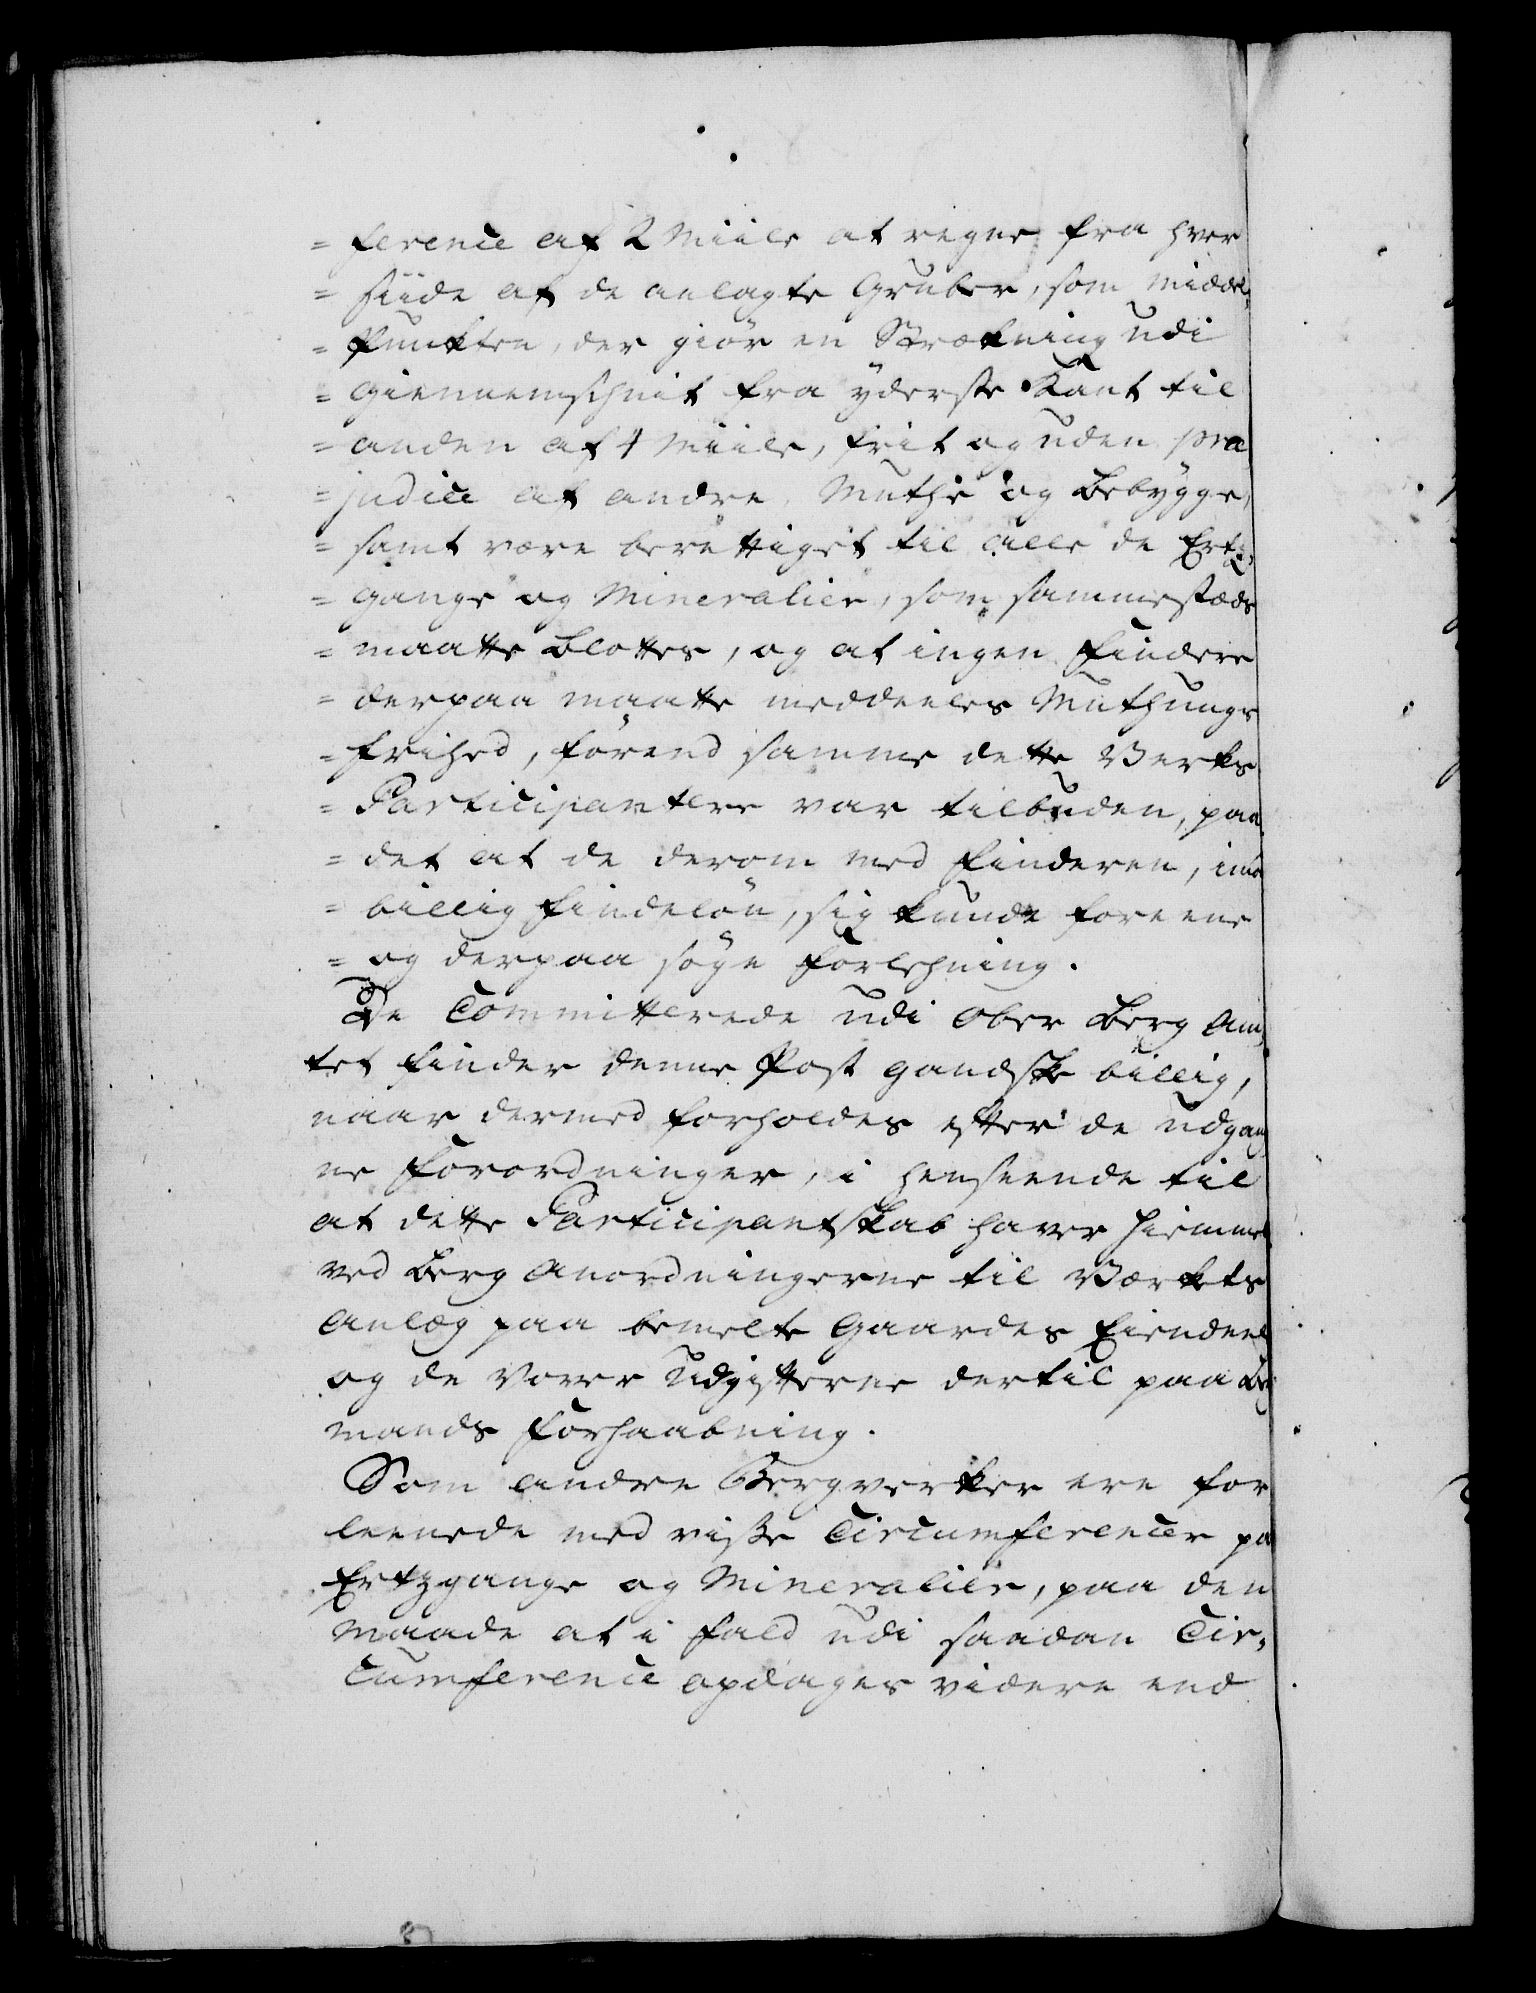 = ference af 2 Miile at regne fra hver
= siide af de anlagte Gruber, som middel,
= Puncten, der giør en Strækning udi
= Giennemschnit fra yderste Kant til
= anden af 4 Miile, frit og uden præ
= judice af andre, Muthe og Bebygge,
= samt være berettiget til alle de Ertz,
= gange og Mineralier, som sammestæds
= maatte Blottes, og at ingen Findere
= derpaa maatte meddeeles Muthungs
= frihed, førend samme dette Verks
= Participantere var tilbuden, paa
= det at de derom med Finderen, imod
= billig Findeløn, sig kunde foreene
= og derpaa søge Forlehning.
De Committerede udi Ober Berg Am,
tet finder denne Post gandske billig,
naar dermed forholdes efter de udgang
ne Forordninger, i henseende til
at dette Participantskab haver Hiemmel
ved Berg Anordningerne til Værkets
Anlæg paa bemelte Gaardes Eiendeel
og de Vover Udgifterne dertil paa Berg
mands Forhaabning.
Som andre Bergverker ere for
leenede med visse Circumferencer paa
Ertzgange og Mineralier, paa den
Maade at i fald udi saadan Cir,
cumference opdages videre end